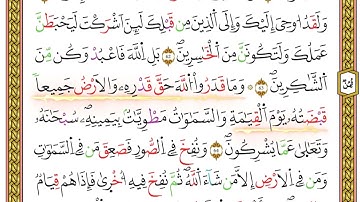 وَلَقَدْ أُوحِىَ إِلَيْكَ وَإِلَى ٱلَّذِينَ مِن قَبْلِكَ لَئِنْ أَشْرَكْتَ لَيَحْبَطَنَّ
عَمَلُكَ وَلَتَكُونَنَّ مِنَ ٱلْخَٰسِرِينَ ۝٦٥ بَلِ ٱللَّهَ فَٱعْبُدْ وَكُن مِّنَ
ٱلشَّٰكِرِينَ ۝٦٦ وَمَا قَدَرُوا۟ ٱللَّهَ حَقَّ قَدْرِهِۦ وَٱلْأَرْضُ جَمِيعًا
قَبْضَتُهُۥ يَوْمَ ٱلْقِيَٰمَةِ وَٱلسَّمَٰوَٰتُ مَطْوِيَّٰتٌۢ بِيَمِينِهِۦ ۚ سُبْحَٰنَهُۥ
وَتَعَٰلَىٰ عَمَّا يُشْرِكُونَ ۝٦٧ وَنُفِخَ فِى ٱلصُّورِ فَصَعِقَ مَن فِى ٱلسَّمَٰوَٰتِ
وَمَن فِى ٱلْأَرْضِ إِلَّا مَن شَآءَ ٱللَّهُ ۖ ثُمَّ نُفِخَ فِيهِ أُخْرَىٰ فَإِذَا هُمْ قِيَامٌ